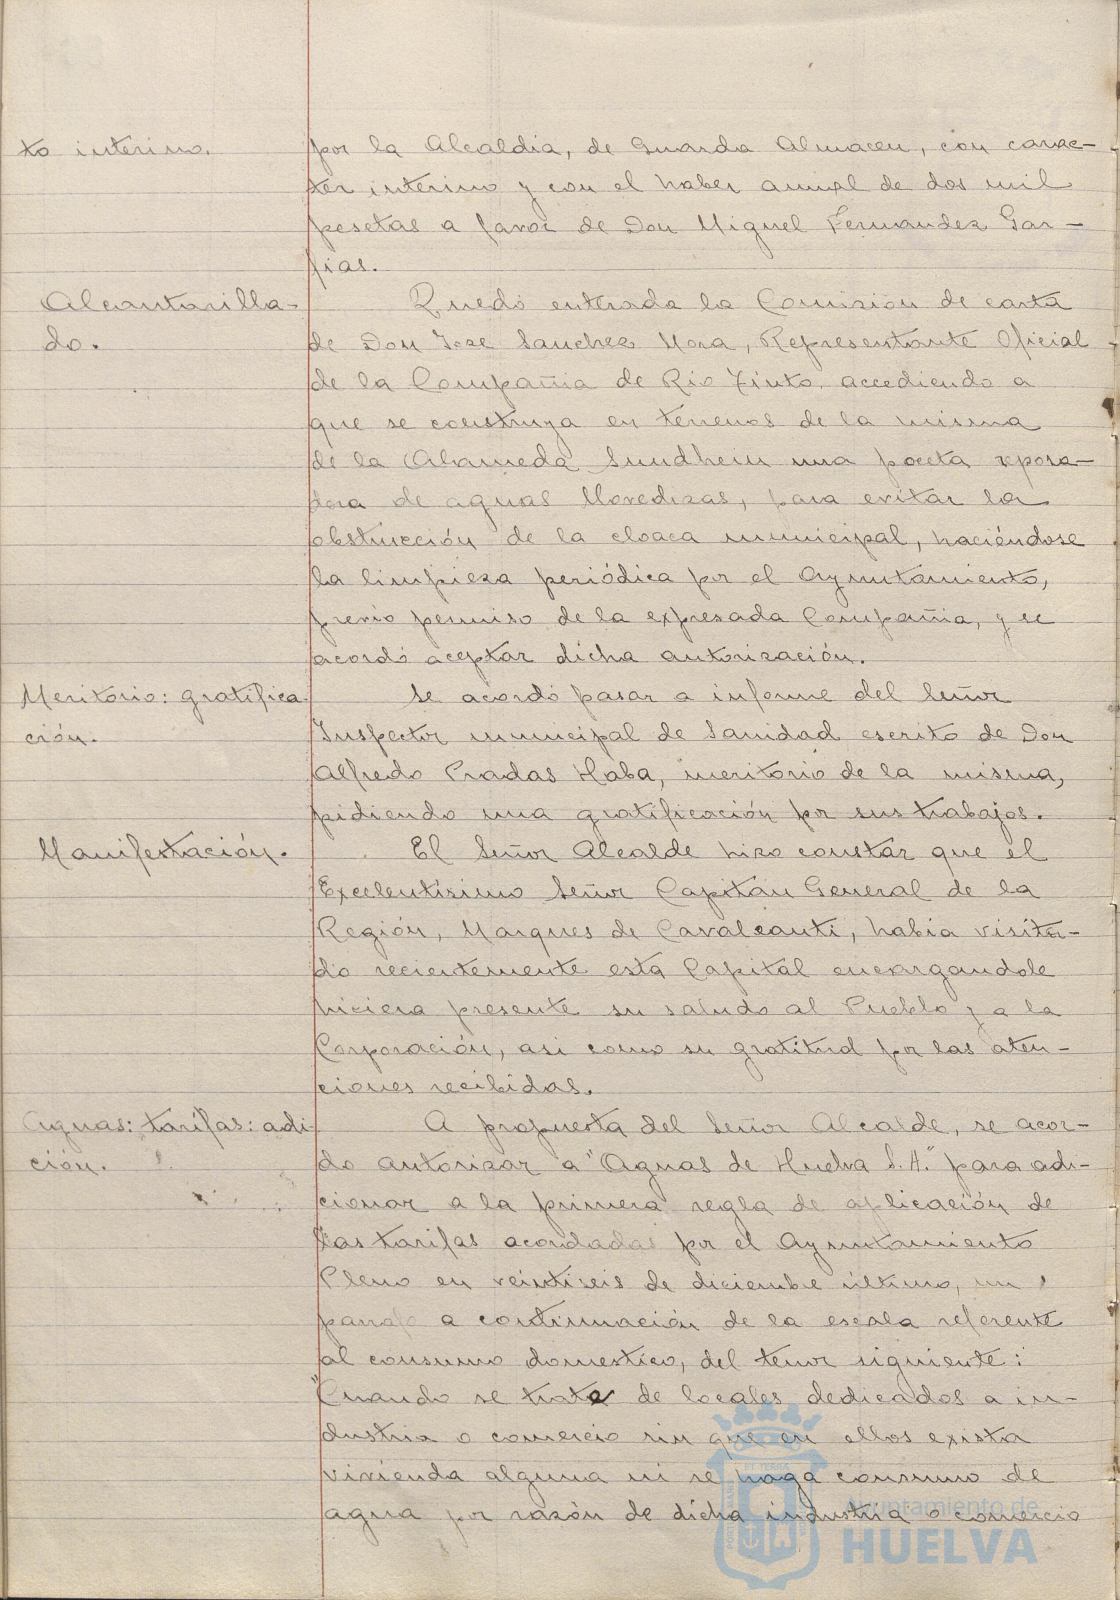 to interino.
por la Alcaldia, de Guarda Almacen, con carac-
ter interino y con el haber anual de dos mil
pesetas a favor de Don Miguel Fernandez Gar-
fias.
Alcantarilla-
do.
Quedó enterada la Comisión de carta
de Don Jose Sanchez Mora, Representante Oficial
de la Compañia de Rio Tinto, accediendo a
que se construya en terrenos de la misma
de la Alameda Sundheim una poceta reposa-
dora de aguas llovedizas, para evitar la
obstrucción de la cloaca municipal, haciéndose
la limpieza periódica por el Ayuntamiento,
previo permiso de la expresada Compañia, y se
acordó aceptar dicha autorización.
Meritorio: gratifica
ción.
Se acordó pasar a informe del Señor
Inspector municipal de Sanidad escrito de Don
Alfredo Pradas Haba, meritorio de la misma,
pidiendo una gratificación por sus trabajos.
Manifestación.
El Señor Alcalde hizo constar que el
Excelentisimo Señor Capitán General de la
Región, Marques de Cavalcanti, habia visita-
do recientemente esta Capital encargandole
hiciera presente su saludo al Pueblo y a la
Corporación, asi como su gratitud por las aten-
ciones recibidas.
Aguas: tarifas: adi-
ción.
A propuesta del Señor Alcalde, se acor-
do autorizar a "Aguas de Huelva S.A." para adi-
cionar a la primera regla de aplicación de
las tarifas acordadas por el Ayuntamiento
Pleno en veintiseis de diciembre último, un
parrafo a continuación de la escala referente
al consumo domestico, del tenor siguiente:
"Cuando se trate de locales dedicados a in-
dustria o comercio sin que en ellos exista
vivienda alguna ni se haga consumo de
agua por razón de dicha industria o comercio
Ayuntamiento de
HUELVA